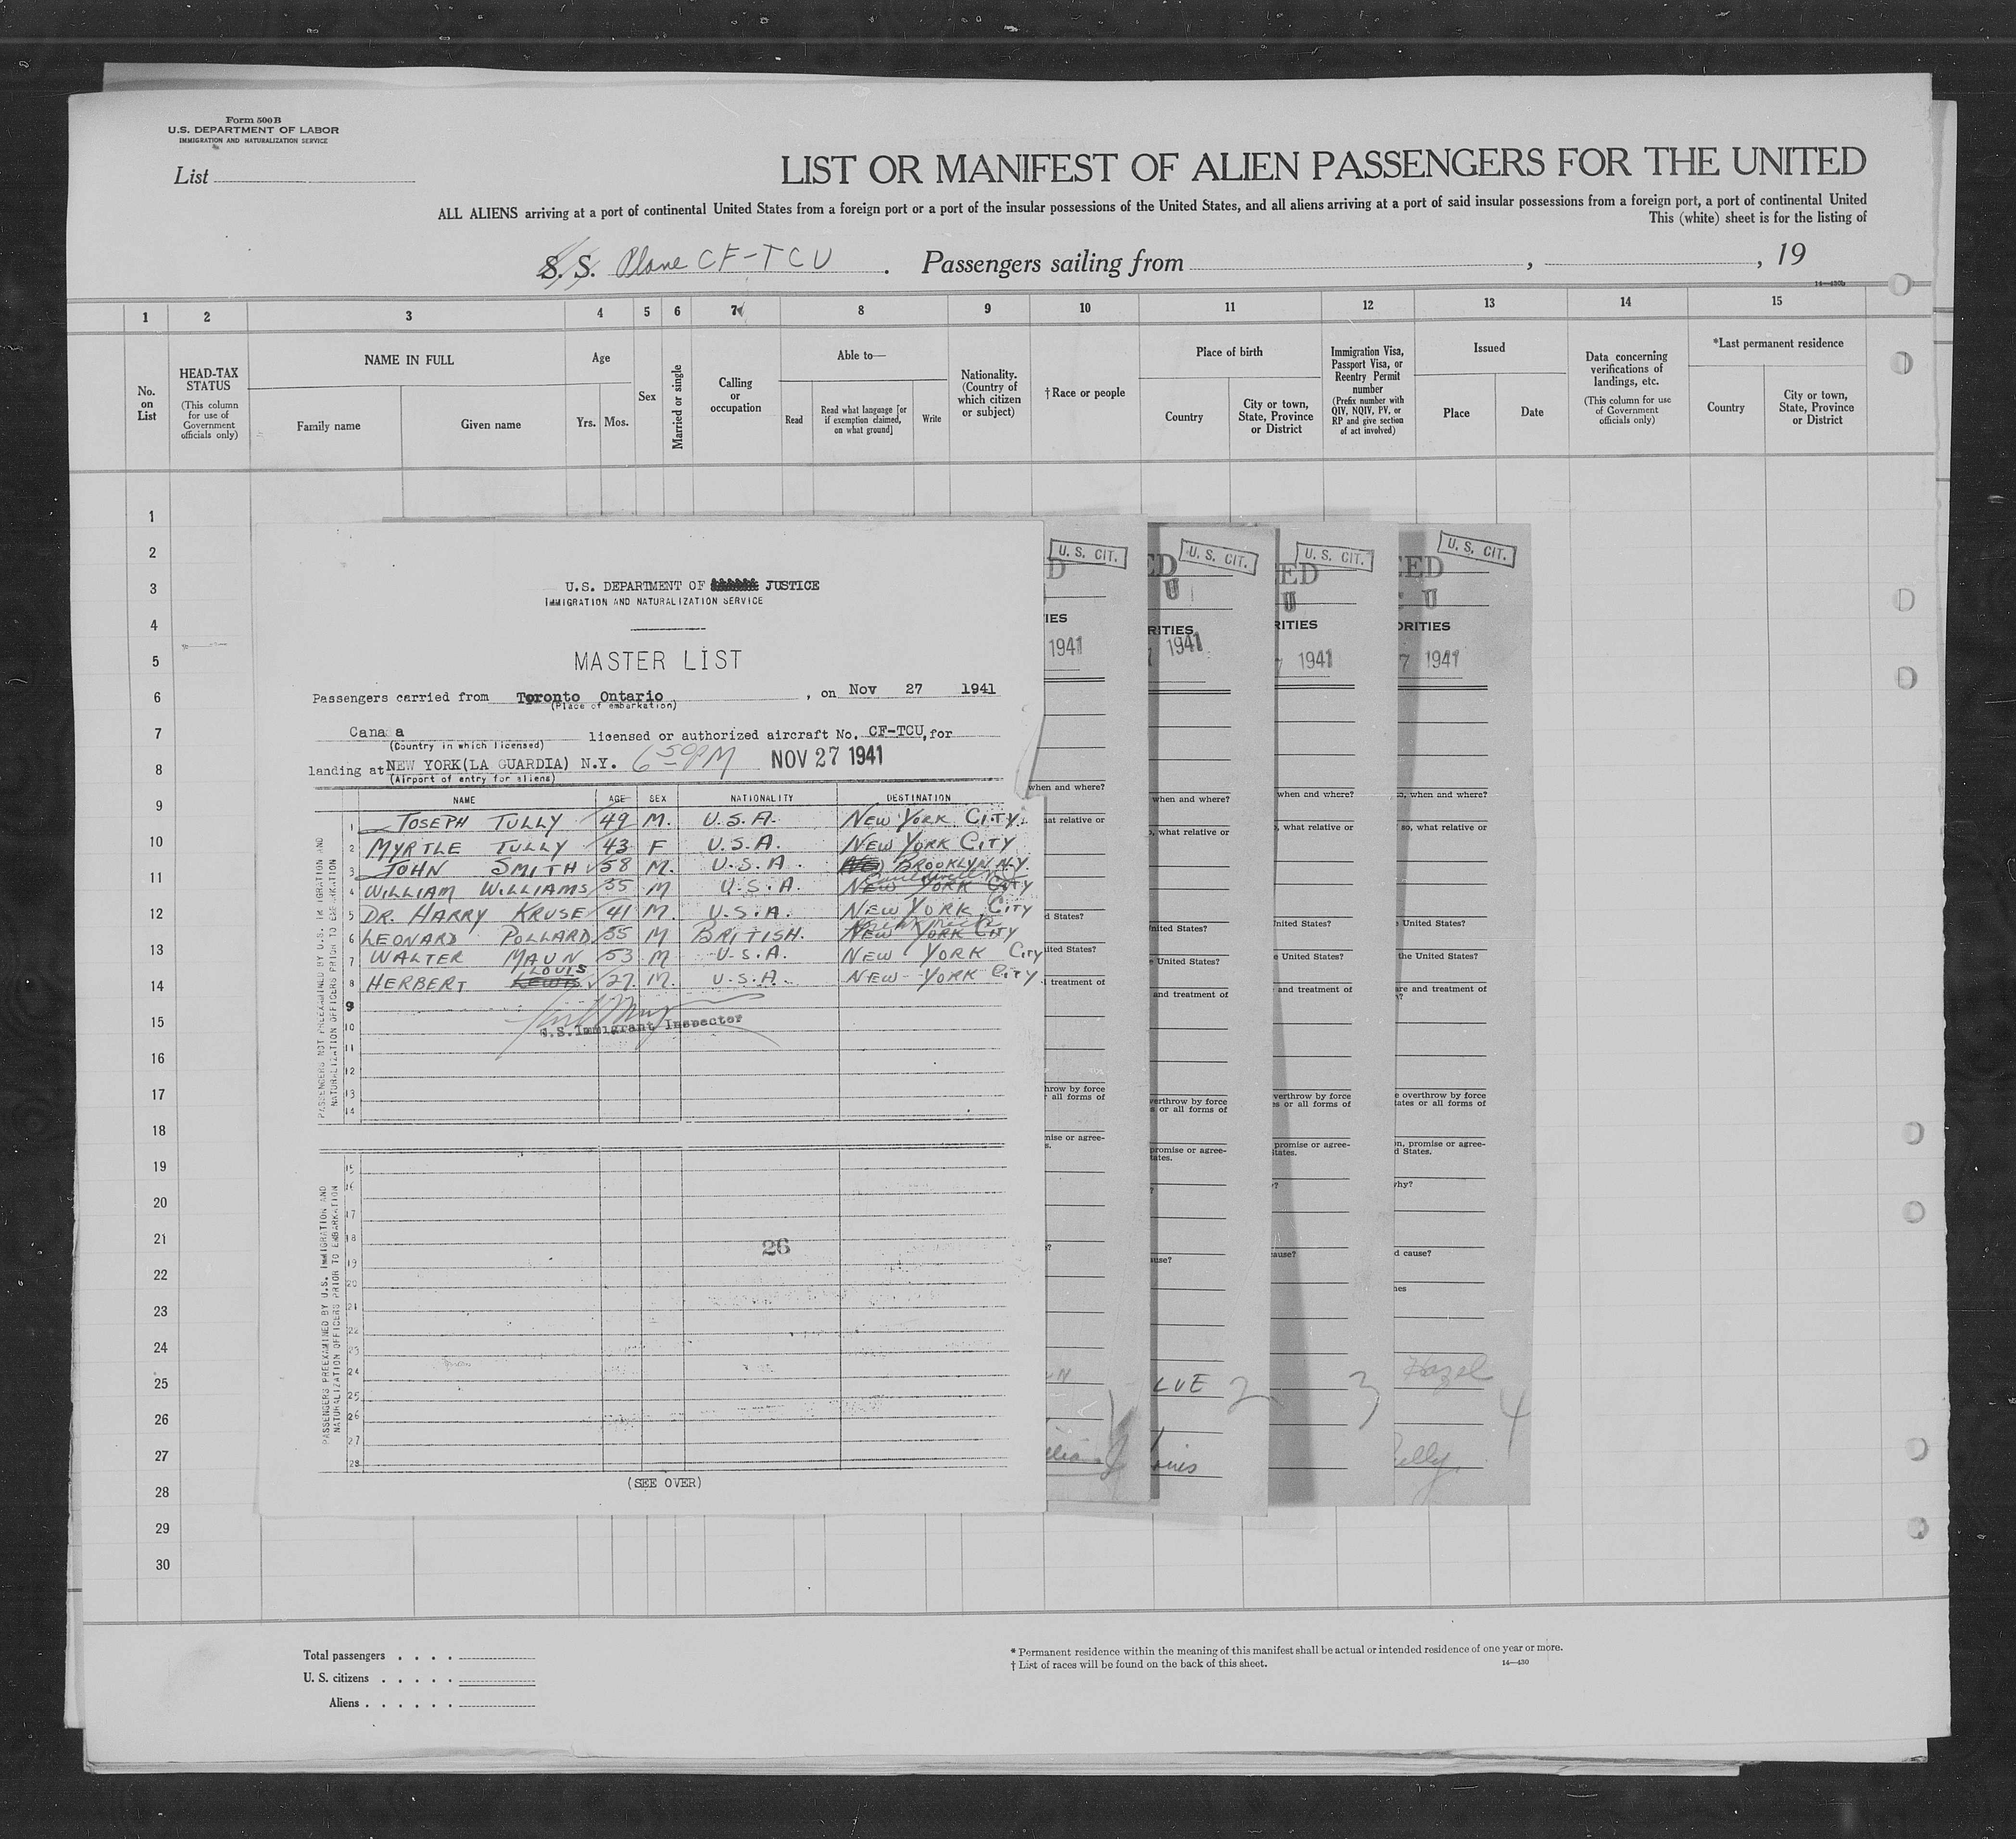 Form 500B
U.S. DEPARTMENT OF LABOR
IMMIGRATION AND NATURALIZATION SERVICE
List
LIST OR MANIFEST OF ALIEN PASSENGERS FOR THE UNITED
ALL ALIENS arriving at a port of continental United States from a foreign port or a port of the insular possessions of the United States, and all aliens arriving at a port of said insular possessions from a foreign port, a port of continental United
This (white) sheet is for the listing of
S. S. Plane CF-TCU. Passengers sailing from , , 19
14—430b
1 2 3 4 5 6 7 8 9 10 11 12 13 14 15
No. on List
HEAD-TAX STATUS
(This column for use of Government officials only)
NAME IN FULL
Family name Given name
Age
Yrs. Mos.
Sex
Married or single
Calling or occupation
Able to—
Read
Read what language [or if exemption claimed, on what ground]
Write
Nationality. (Country of which citizen or subject)
†Race or people
Place of birth
Country
City or town, State, Province or District
Immigration Visa, Passport Visa, or Reentry Permit number
(Prefix number with QIV, NQIV, PV, or RP and give section of act involved)
Issued
Place Date
Data concerning verifications of landings, etc.
(This column for use of Government officials only)
*Last permanent residence
Country
City or town, State, Province or District
1
2
3
4
5
6
7
8
9
10
11
12
13
14
15
16
17
18
19
20
21
22
23
24
25
26
27
28
29
30
U.S. DEPARTMENT OF JUSTICE
IMMIGRATION AND NATURALIZATION SERVICE
MASTER LIST
Passengers carried from Toronto Ontario , on Nov 27 1941
(Place of embarkation)
Cana a licensed or authorized aircraft No. CF-TCU, for
(Country in which licensed)
landing at NEW YORK(LA GUARDIA) N.Y. 6 50 PM NOV 27 1941
(Airport of entry for aliens)
NAME AGE SEX NATIONALITY DESTINATION
PASSENGERS NOT PREEXAMINED BY U.S. IMMIGRATION AND NATURALIZATION OFFICERS PRIOR TO EMBARKATION
1 JOSEPH TULLY 49 M. U.S.A. NEW YORK CITY.
2 MYRTLE TULLY 43 F U.S.A. NEW YORK CITY
3 JOHN SMITH 58 M. U.S.A. BROOKLYN N.Y.
4 WILLIAM WILLIAMS 35 M U.S.A. NEW YORK CITY
5 DR. HARRY KRUSE 41 M. U.S.A. NEW YORK CITY
6 LEONARD POLLARD 55 M BRITISH. NEW YORK CITY
7 WALTER MAUN 53 M U.S.A. NEW YORK City
8 HERBERT LEWIS LOUIS 27 M. U.S.A. NEW-YORK City
9
10
U.S. Immigrant Inspector
11
12
13
14
PASSENGERS PREEXAMINED BY U.S. IMMIGRATION AND NATURALIZATION OFFICERS PRIOR TO EMBARKATION
15
16
17
18
26
19
20
21
22
23
24
25
26
27
28
(SEE OVER)
U. S. CIT.
D
IES
1941
when and where?
hat relative or
d States?
ited States?
l treatment of
hrow by force
r all forms of
mise or agree-
s.
?
U. S. CIT.
ED
U
RITIES
1941
when and where?
, what relative or
nited States?
e United States?
and treatment of
verthrow by force
s or all forms of
promise or agree-
tates.
?
use?
LUE 2
ouis
U. S. CIT.
ED
U
RITIES
7 1941
when and where?
, what relative or
nited States?
e United States?
and treatment of
verthrow by force
es or all forms of
promise or agree-
States.
?
ause?
3
U. S. CIT.
CED
C U
ORITIES
7 1941
o, when and where?
so, what relative or
e United States?
the United States?
are and treatment of
?
e overthrow by force
tates or all forms of
n, promise or agree-
d States.
hy?
d cause?
nes
Hazel
4
elly
Total passengers . . . .
U. S. citizens . . . . .
Aliens . . . . . .
* Permanent residence within the meaning of this manifest shall be actual or intended residence of one year or more.
† List of races will be found on the back of this sheet.
14—430